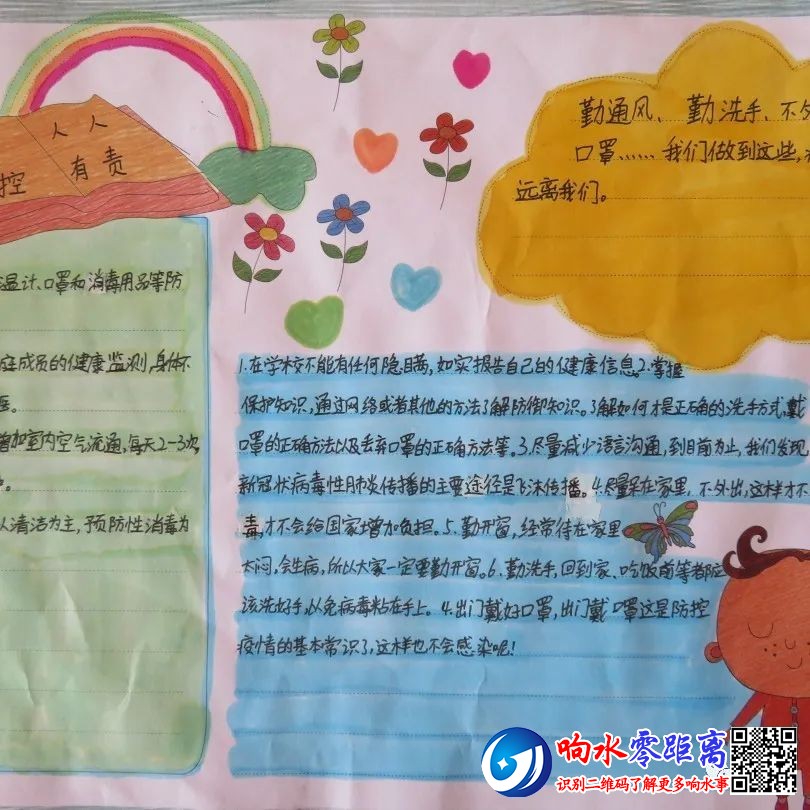 人人
控 有责
温计、口罩和消毒用品等防
庭成员的健康监测,身体不
增加室内空气流通,每天2-3次,
以清洁为主,预防性消毒为
勤通风、勤洗手、不外
口罩……我们做到这些,
远离我们。
1.在学校不能有任何隐瞒,如实报告自己的健康信息。2.掌握
保护知识,通过网络或者其他的方法了解防御知识。了解如何才是正确的洗手方式,戴
口罩的正确方法以及丢弃口罩的正确方法等。3.尽量减少语言沟通,到目前为止,我们发现
新冠状病毒性肺炎传播的主要途径是飞沫传播。4.尽量呆在家里,不外出,这样才不
毒,才不会给国家增加负担。5.勤开窗,经常待在家里
太闷,会生病,所以大家一定要勤开窗。6.勤洗手,回到家、吃饭前等者都应
该洗好手,以免病毒粘在手上。4.出门戴好口罩,出门戴口罩这是防控
疫情的基本常识了,这样也不会感染呢!
响水零距离
识别二维码了解更多响水事